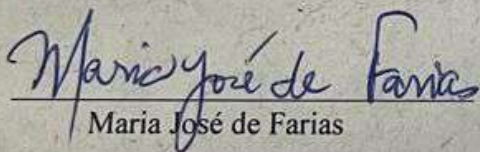 Maria José de Farias
Maria José de Farias